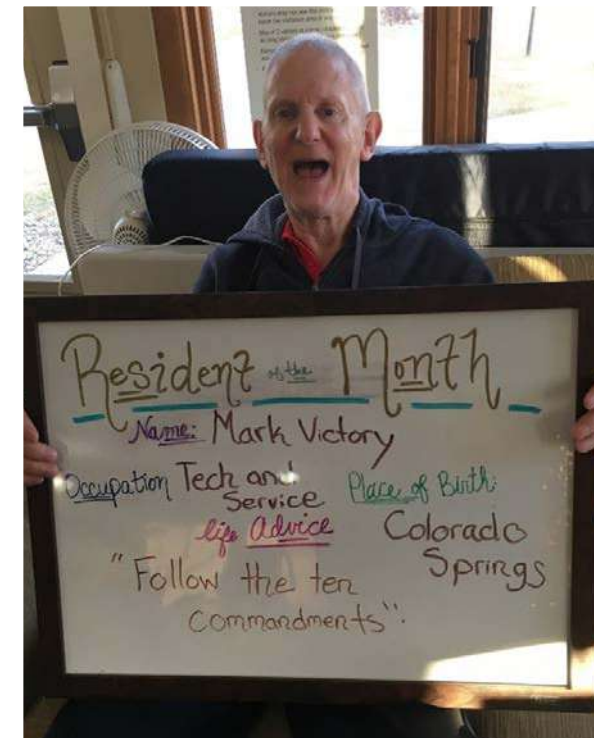 Resident of the Month
Name: Mark Victory
Occupation Tech and Service
Place of Birth:
Colorado Springs
life Advice
"Follow the ten
commandments".